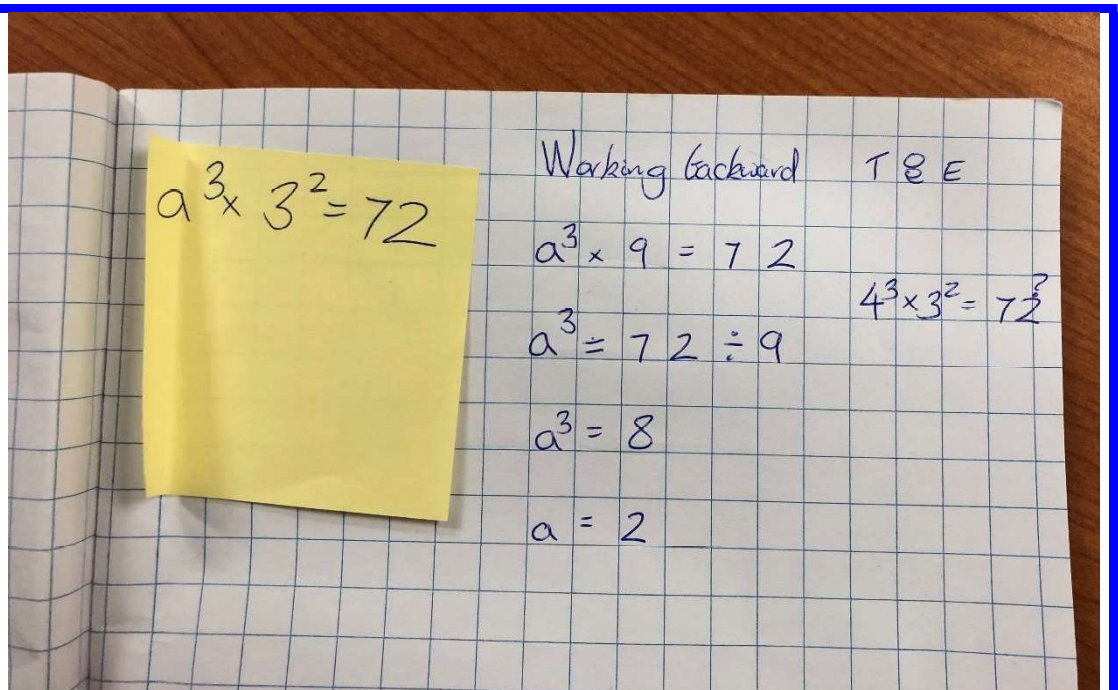 a³ x 3² = 72
Working backward
a³ x 9 = 72
a³ = 72 ÷ 9
a³ = 8
a = 2
T & E
4³ x 3² = 72?